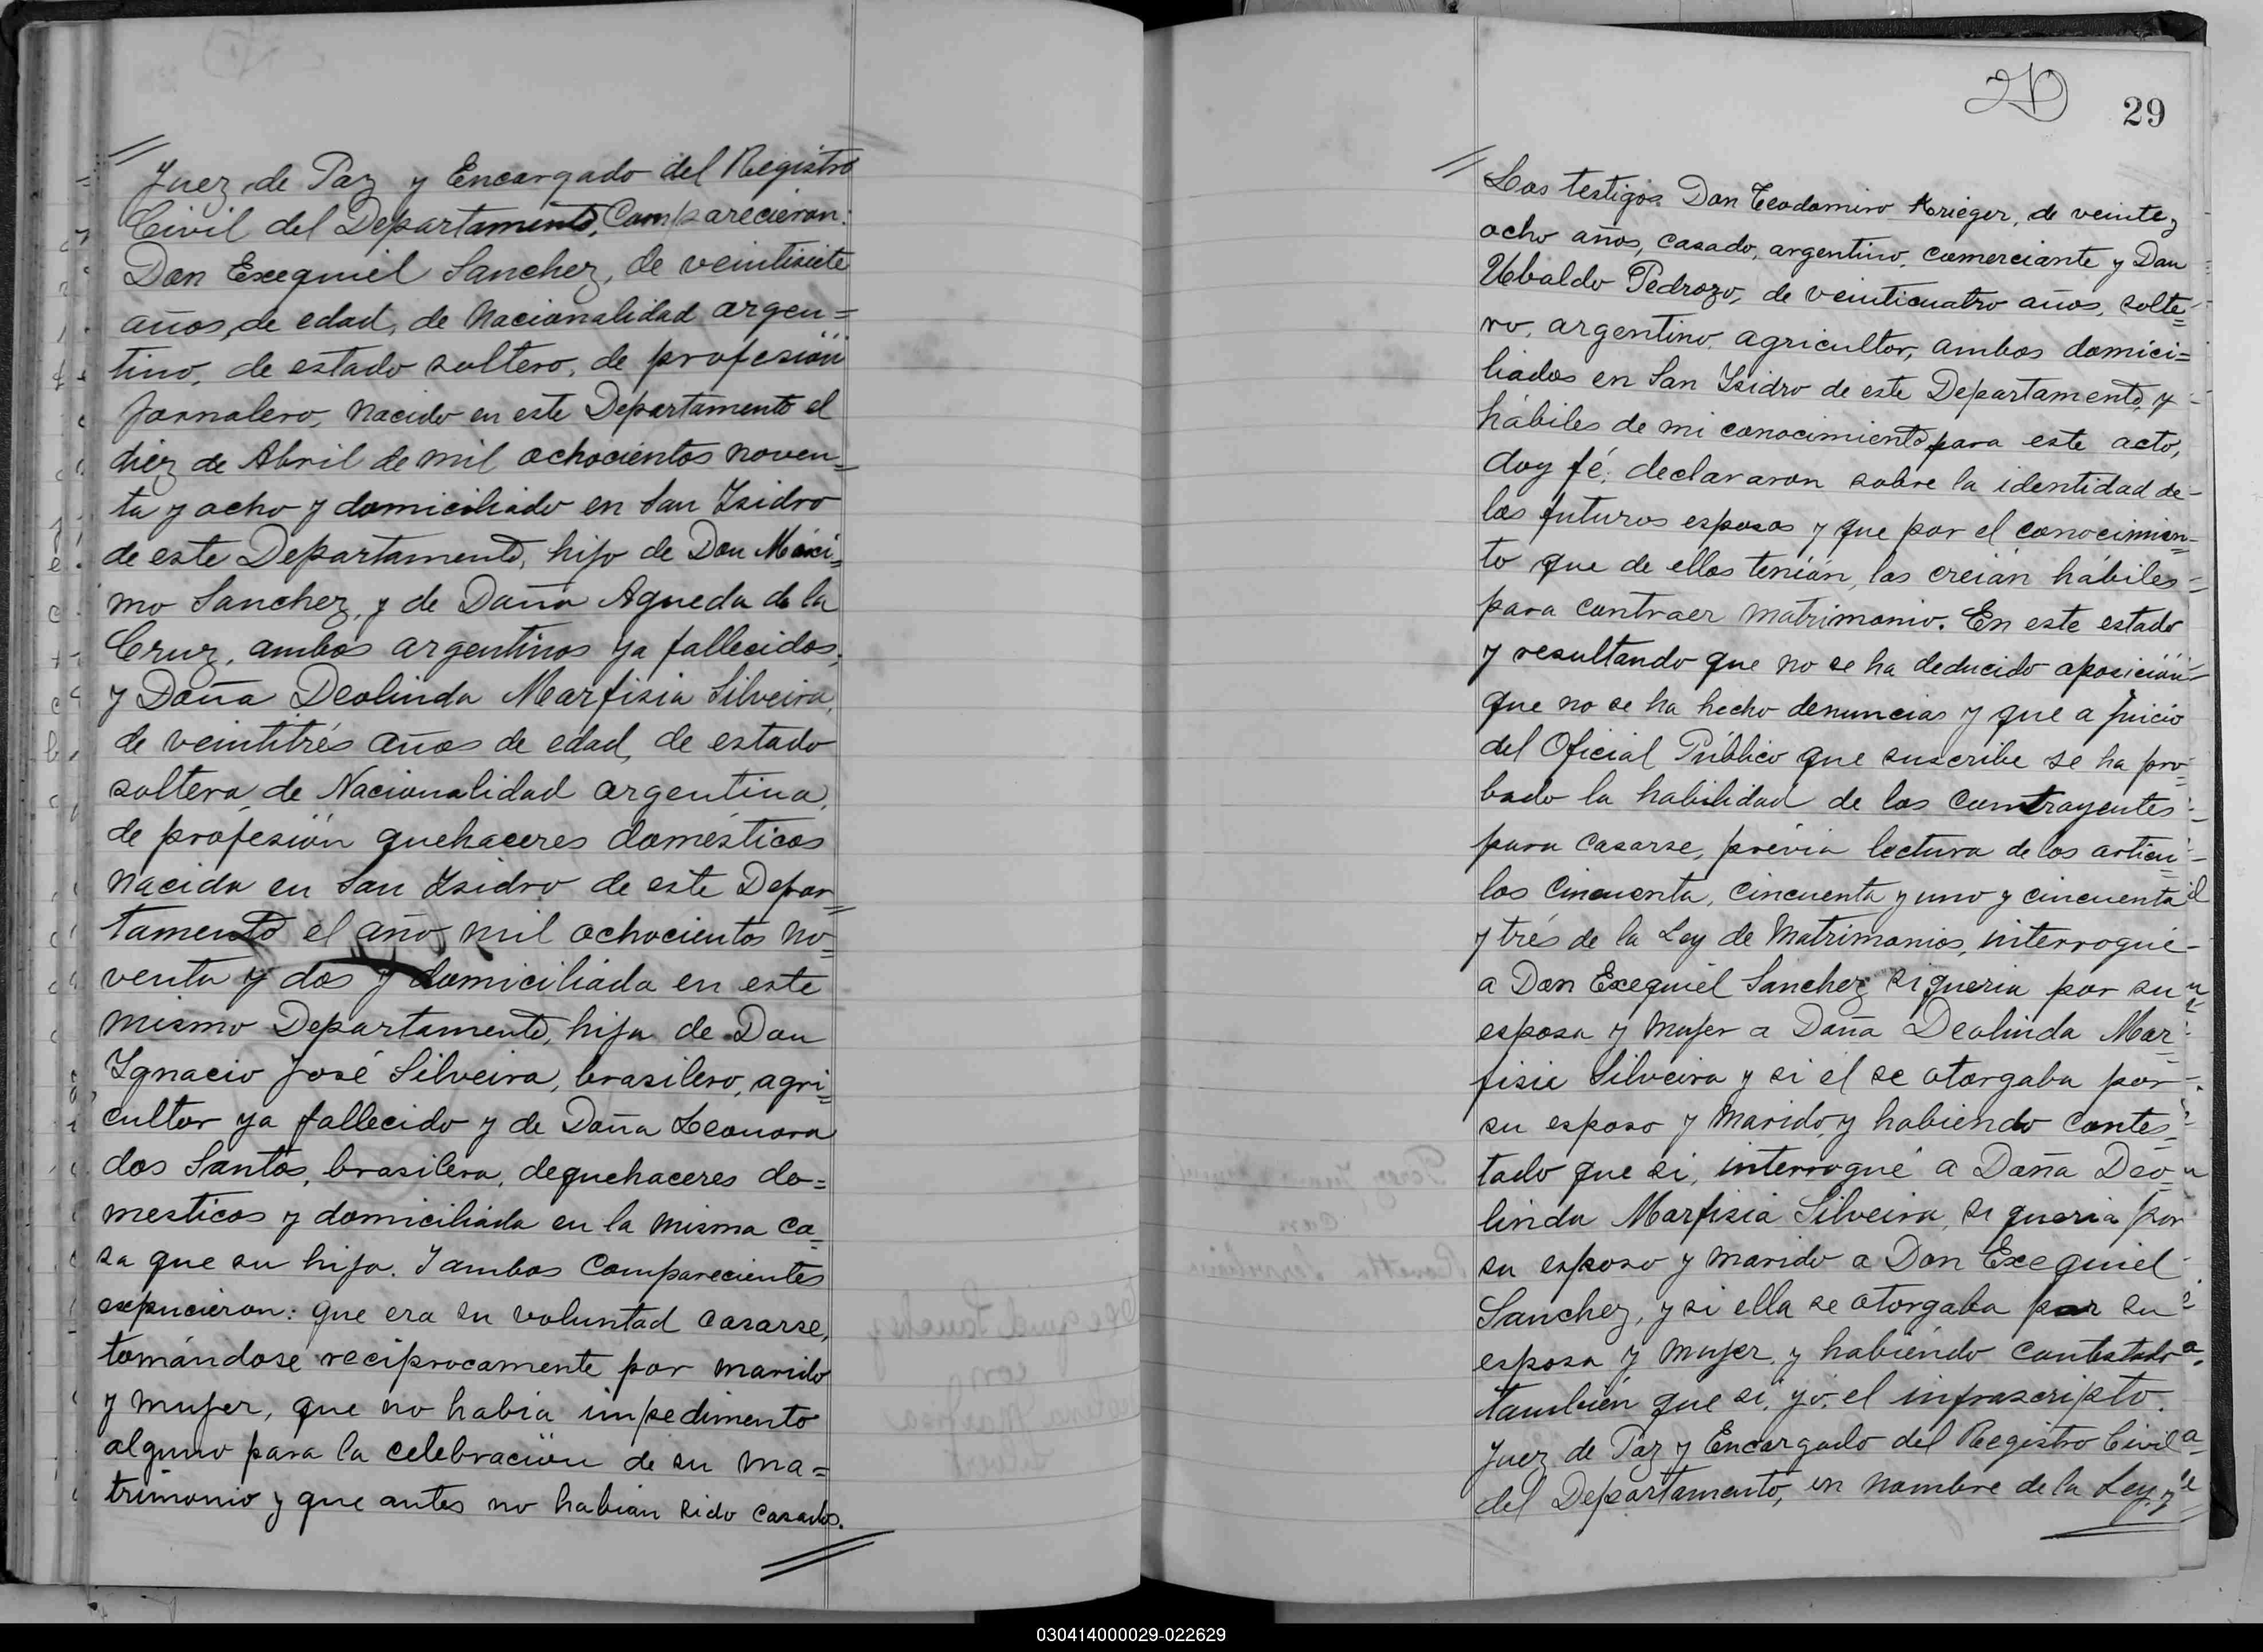 Juez de Paz y Encargado del Registro
Civil del Departamento, Comparecieron:
Don Exequiel Sanchez, de veintisiete
años, de edad, de nacionalidad argen=
tino, de estado soltero, de profesión
jornalero, nacido en este Departamento el
diez de Abril de mil ochocientos noven=
ta y ocho y domiciliado en San Isidro
de este Departamento, hijo de Don Máxi=
mo Sanchez, y de Doña Agueda de la
Cruz, ambos argentinos ya fallecidos;
y Doña Deolinda Marfisia Silveira,
de veintitrés años de edad, de estado
soltera, de Nacionalidad argentina,
de profesión quehaceres domésticos
nacida en San Isidro de este Depar=
tamento el año mil ochocientos no=
venta y dos y domiciliada en este
mismo Departamento, hija de Don
Ignacio José Silveira, brasilero, agri=
cultor ya fallecido y de Doña Leonora
dos Santos, brasilera, de quehaceres do=
mesticos y domiciliada en la misma ca=
sa que su hija. Y ambos Comparecientes
expucieron: que era su voluntad casarse,
tomándose recíprocamente por marido
y mujer, que no había impedimento
alguno para la celebración de su ma=
trimonio y que antes no habían sido casados.
29
Los testigos Don Teodomiro Krieger, de veinte y
ocho años, casado, argentino, comerciante y Don
Ubaldo Pedrozo, de veinticuatro años, solte=
ro, argentino, agricultor, ambos domici=
liados en San Isidro de este Departamento, y
hábiles de mi conocimiento para este acto,
doy fé; declararon sobre la identidad de
los futuros esposos y que por el conocimien=
to que de ellos tenían, los creían hábiles
para contraer matrimonio. En este estado
y resultando que no se ha deducido oposición
que no se ha hecho denuncias y que a juicio
del Oficial Público que suscribe se ha pro=
bado la habilidad de los contrayentes
para casarse, prévia lectura de los artícu=
los cincuenta, cincuenta y uno y cincuenta
y trés de la Ley de Matrimonios, interrogué
a Don Exequiel Sanchez si queria por su
esposa y mujer a Doña Deolinda Mar=
fisia Silveira y si él se otorgaba por
su esposo y marido, y habiendo contes=
tado que si, interrogué a Doña Deo=
linda Marfisia Silveira, si queria por
su esposo y marido a Don Exequiel
Sanchez, y si ella se otorgaba por su
esposa y mujer, y habiéndo contestado
también que si, yó, el infrascripto.
Juez de Paz y Encargado del Registro Civil
del Departamento, en nombre de la Ley, y
030414000029-022629